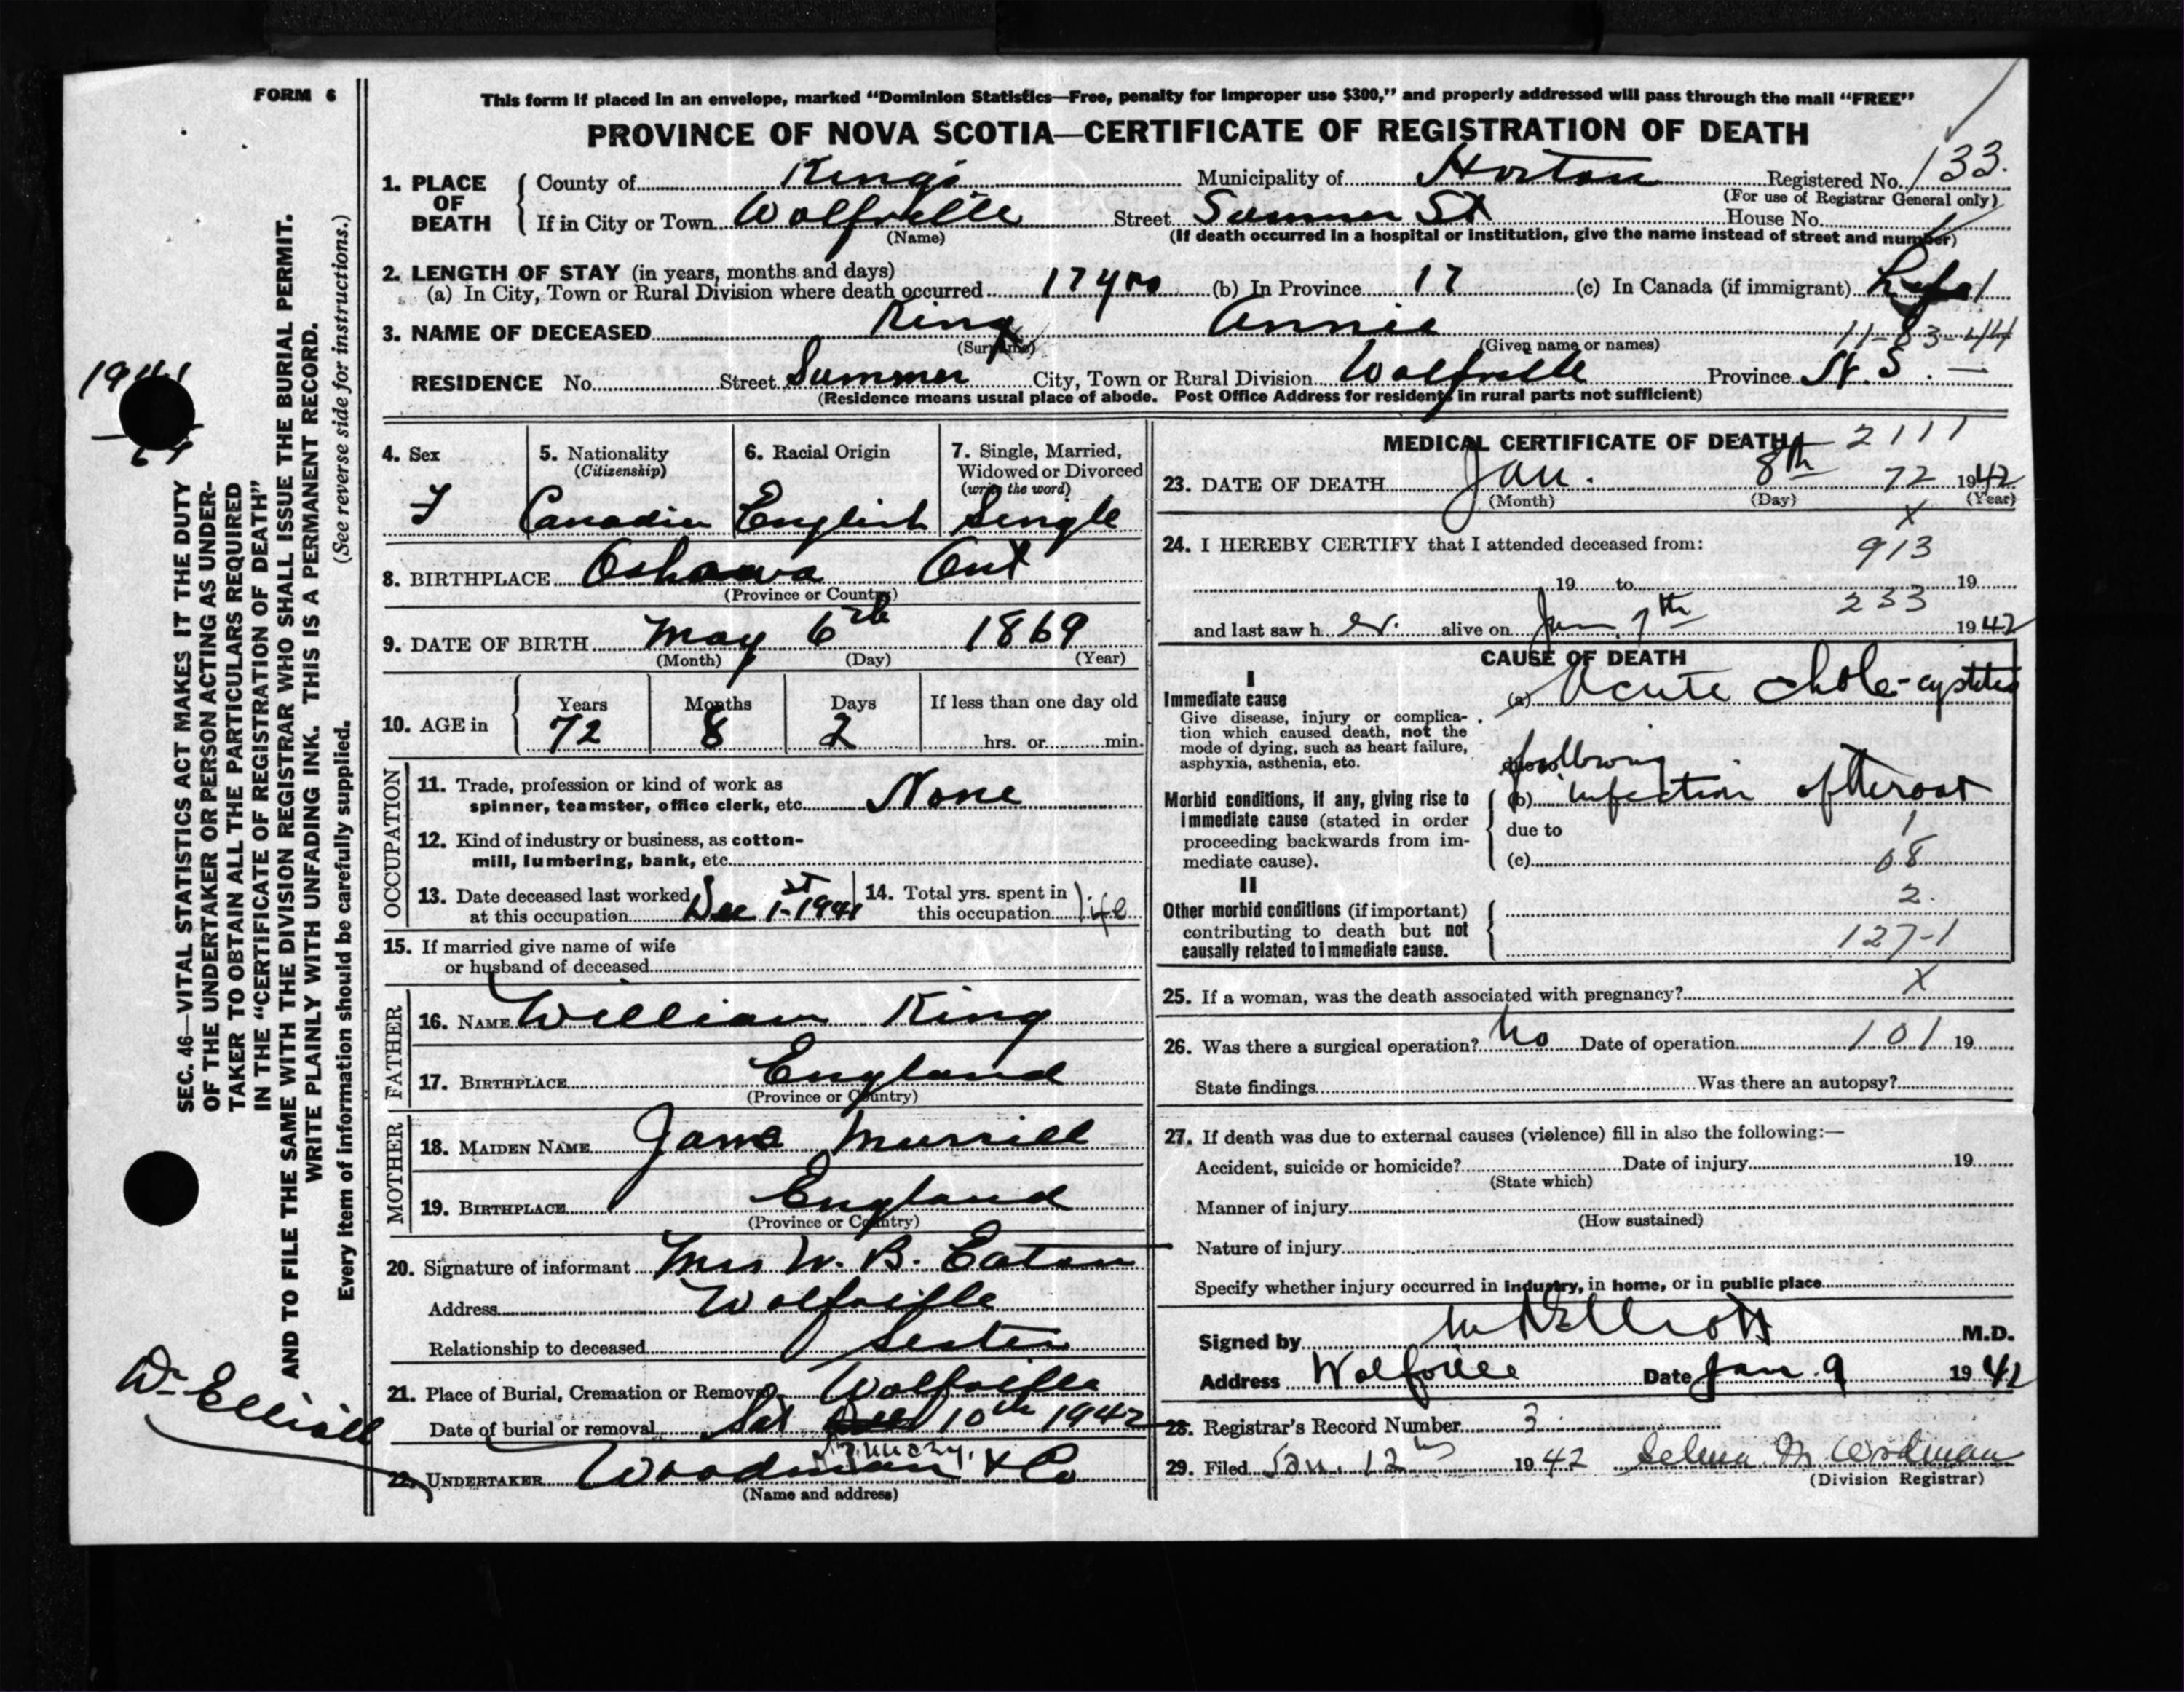 FORM 6
This form if placed in an envelope, marked "Dominion Statistics—Free, penalty for improper use $300," and properly addressed will pass through the mail "FREE"
PROVINCE OF NOVA SCOTIA—CERTIFICATE OF REGISTRATION OF DEATH
1. PLACE OF DEATH
County of Kings Municipality of Horton Registered No. 133.
(For use of Registrar General only)
If in City or Town Wolfville Street Summer St House No.
(Name) (If death occurred in a hospital or institution, give the name instead of street and number)
2. LENGTH OF STAY (in years, months and days)
(a) In City, Town or Rural Division where death occurred 17 yrs (b) In Province 17 (c) In Canada (if immigrant) Life
3. NAME OF DECEASED King Annie
(Surname) (Given name or names)
RESIDENCE No. Street Summer City, Town or Rural Division Wolfville Province N.S.
(Residence means usual place of abode. Post Office Address for residents in rural parts not sufficient)
4. Sex
F
5. Nationality
(Citizenship)
Canadian
6. Racial Origin
English
7. Single, Married,
Widowed or Divorced
(write the word)
Single
8. BIRTHPLACE Oshawa Ont
(Province or Country)
9. DATE OF BIRTH May 6th 1869
(Month) (Day) (Year)
10. AGE in
Years Months Days If less than one day old
72 8 2 hrs. or min.
OCCUPATION
11. Trade, profession or kind of work as
spinner, teamster, office clerk, etc. None
12. Kind of industry or business, as cotton-
mill, lumbering, bank, etc.
13. Date deceased last worked
at this occupation Dec 1st 1941
14. Total yrs. spent in
this occupation life
15. If married give name of wife
or husband of deceased
FATHER
16. NAME William King
17. BIRTHPLACE England
(Province or Country)
MOTHER
18. MAIDEN NAME Jane Murrill
19. BIRTHPLACE England
(Province or Country)
20. Signature of informant Mrs W. B. Eaton
Address Wolfville
Relationship to deceased Sister
21. Place of Burial, Cremation or Removal Wolfville
Date of burial or removal Sat 10th 1942
January.
22. UNDERTAKER Woodman & Co
(Name and address)
MEDICAL CERTIFICATE OF DEATH 2111
23. DATE OF DEATH Jan. 8th 72 1942
(Month) (Day) (Year)
X
24. I HEREBY CERTIFY that I attended deceased from:
913
19 to 19
233
and last saw her alive on Jan. 7th 1942
CAUSE OF DEATH
I
Immediate cause
(a) Acute chole-cystitis
Give disease, injury or complica-
tion which caused death, not the
mode of dying, such as heart failure,
asphyxia, asthenia, etc.
following
Morbid conditions, if any, giving rise to
immediate cause (stated in order
proceeding backwards from im-
mediate cause).
(b) infection of throat
due to
(c) 08
II
2.
Other morbid conditions (if important)
contributing to death but not
causally related to immediate cause.
127-1
X
25. If a woman, was the death associated with pregnancy?
26. Was there a surgical operation? No Date of operation 101 19
State findings Was there an autopsy?
27. If death was due to external causes (violence) fill in also the following:—
Accident, suicide or homicide? Date of injury 19
(State which)
Manner of injury
(How sustained)
Nature of injury
Specify whether injury occurred in industry, in home, or in public place
Signed by Elliott M.D.
Address Wolfville Date Jan. 9 1942
28. Registrar's Record Number 3
29. Filed Jan. 12 1942 Selena M Woodman
(Division Registrar)
SEC. 46—VITAL STATISTICS ACT MAKES IT THE DUTY
OF THE UNDERTAKER OR PERSON ACTING AS UNDER-
TAKER TO OBTAIN ALL THE PARTICULARS REQUIRED
IN THE "CERTIFICATE OF REGISTRATION OF DEATH"
AND TO FILE THE SAME WITH THE DIVISION REGISTRAR WHO SHALL ISSUE THE BURIAL PERMIT.
WRITE PLAINLY WITH UNFADING INK. THIS IS A PERMANENT RECORD.
Every item of information should be carefully supplied. (See reverse side for instructions.)
1941
Dr Elliott